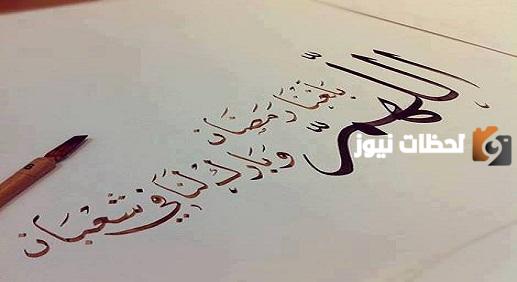 اللَّهُمَّ
بَلِّغْنَا رَمَضَانَ
وَبَارِكْ لَنَا فِي شَعْبَانَ
لحظات نيوز